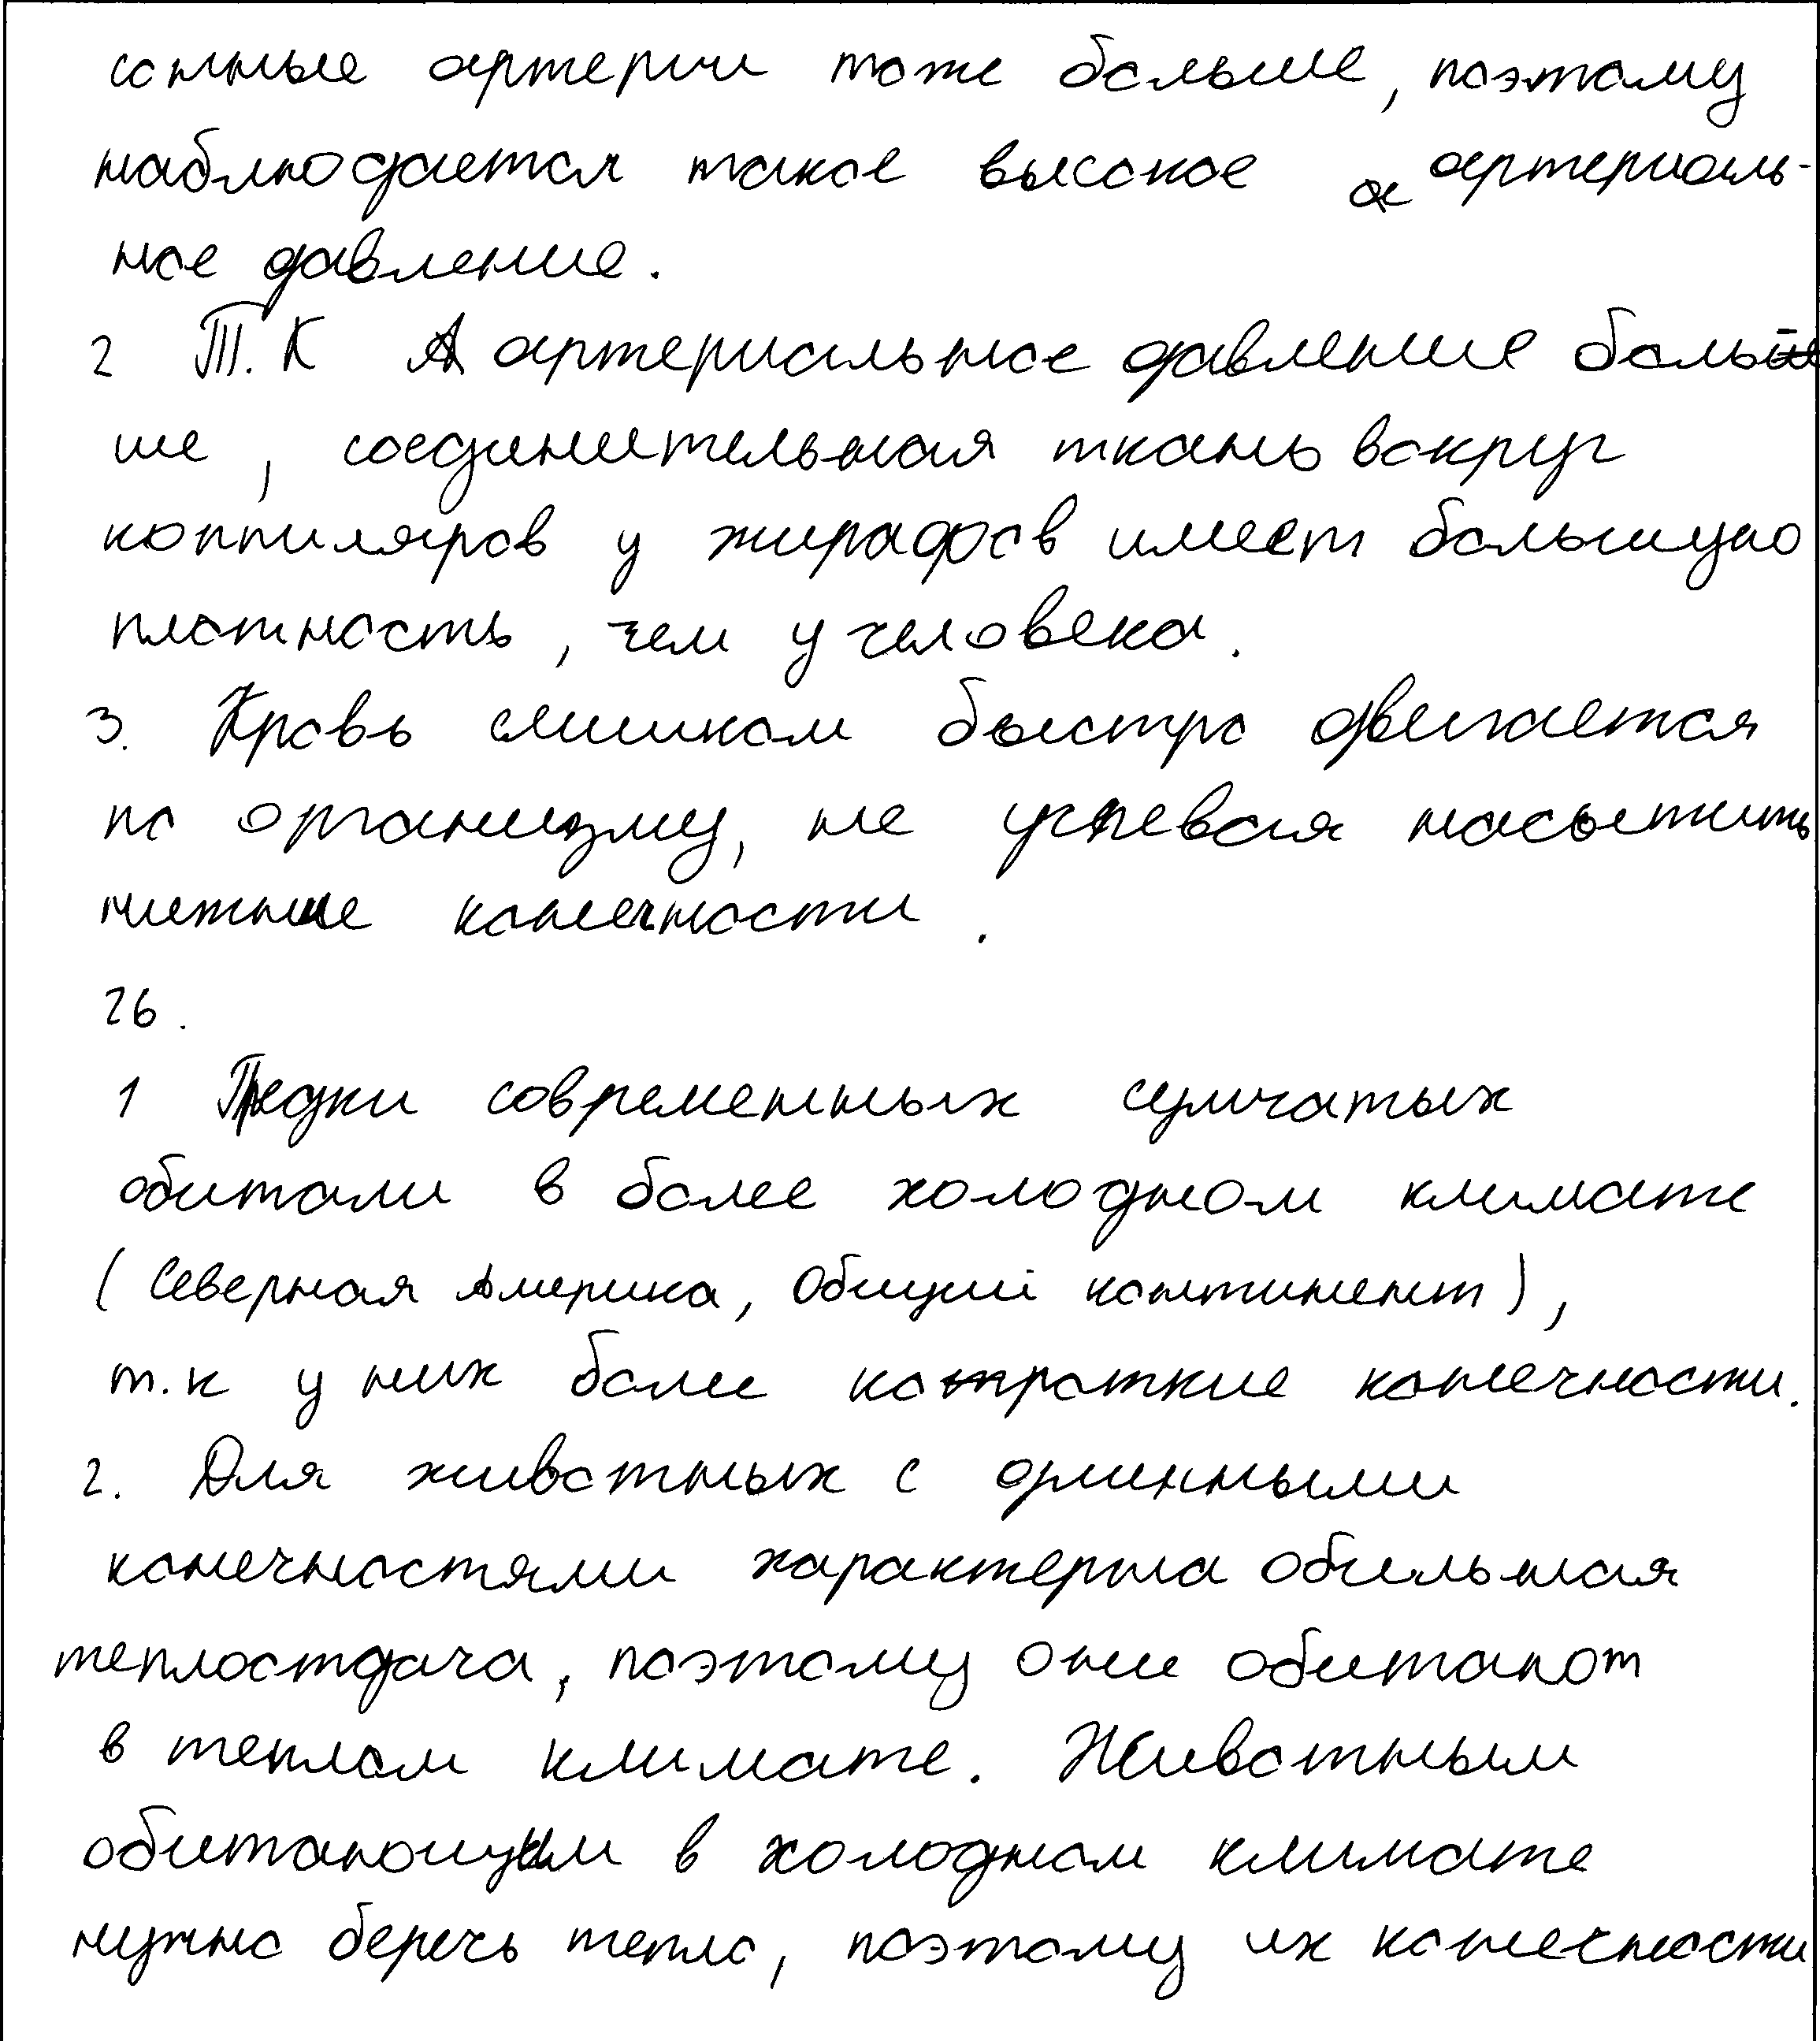 сонные артерии тоже больше, поэтому
наблюдается такое высокое артериаль-
ное давление.
2 Т.К артериальное давление боль
ше, соединительная ткань вокруг
коппиляров у жирафов имеет большую
плотность, чем у человека.
3. Кровь слишком быстро двигается
по организму, не успевая насытить
нижние конечности.
26.
1 Предки современных сумчатых
обитали в более холодном климате
(Северная Америка, Общий континент),
т.к у них более короткие конечности.
2. Для животных с длинными
конечностями характерна обильная
теплоотдача, поэтому они обитают
в теплом климате. Животным
обитающим в холодном климате
нужно беречь тепло, поэтому их конечности